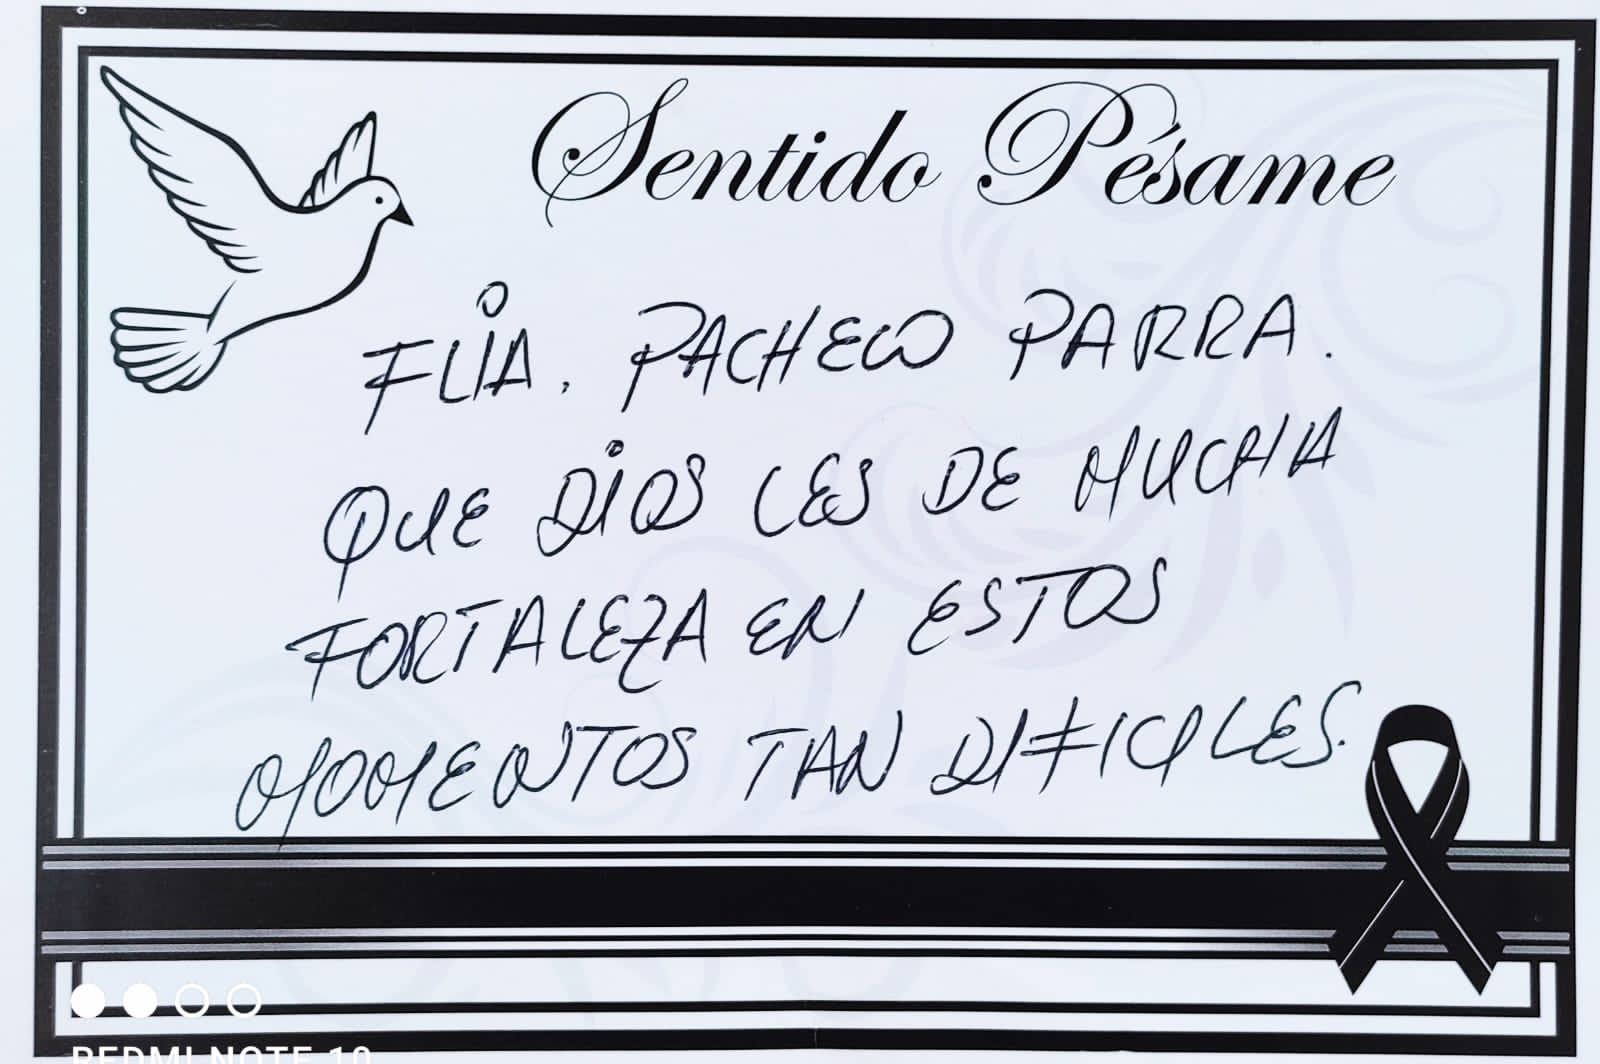 Sentido Pésame
FLIA. PACHECO PARRA.
QUE DIOS LES DE MUCHA
FORTALEZA EN ESTOS
MOMENTOS TAN DIFICILES.
REDMI NOTE 10